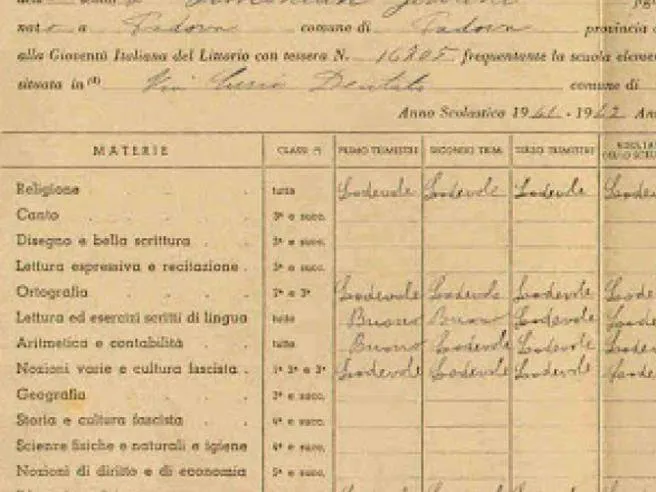 nat o a Padova comune di Padova provincia
alla Gioventù Italiana del Littorio con tessera N. 16205 frequentante la scuola elemen
situata in (4) Via Dentato comune di
Anno Scolastico 1941 - 1942 An
MATERIE CLASSI PRIMO TRIMESTRE SECONDO TRIM. TERZO TRIMESTRE
Religione tutte Lodevole Lodevole Lodevole Lodev
Canto 3ª e succ.
Disegno e bella scrittura 3ª e succ.
Lettura espressiva e recitazione 3ª e succ.
Ortografia 2ª e 3ª Lodevole Lodevole Lodevole Lode
Lettura ed esercizi scritti di lingua tutte Buono Buono Lodevole Lode
Aritmetica e contabilità tutte Buono Lodevole Lodevole Lode
Nozioni varie e cultura fascista 1ª 2ª e 3ª Lodevole Lodevole Lodevole Lode
Geografia 3ª e succ.
Storia e cultura fascista 4ª e succ.
Scienze fisiche e naturali e igiene 4ª e succ.
Nozioni di diritto e di economia 5ª e succ.